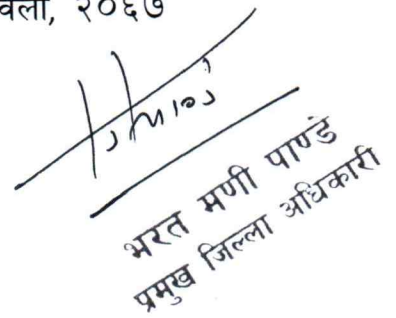 वली, २०६७
भरत मणी पाण्डे
प्रमुख जिल्ला अधिकारी